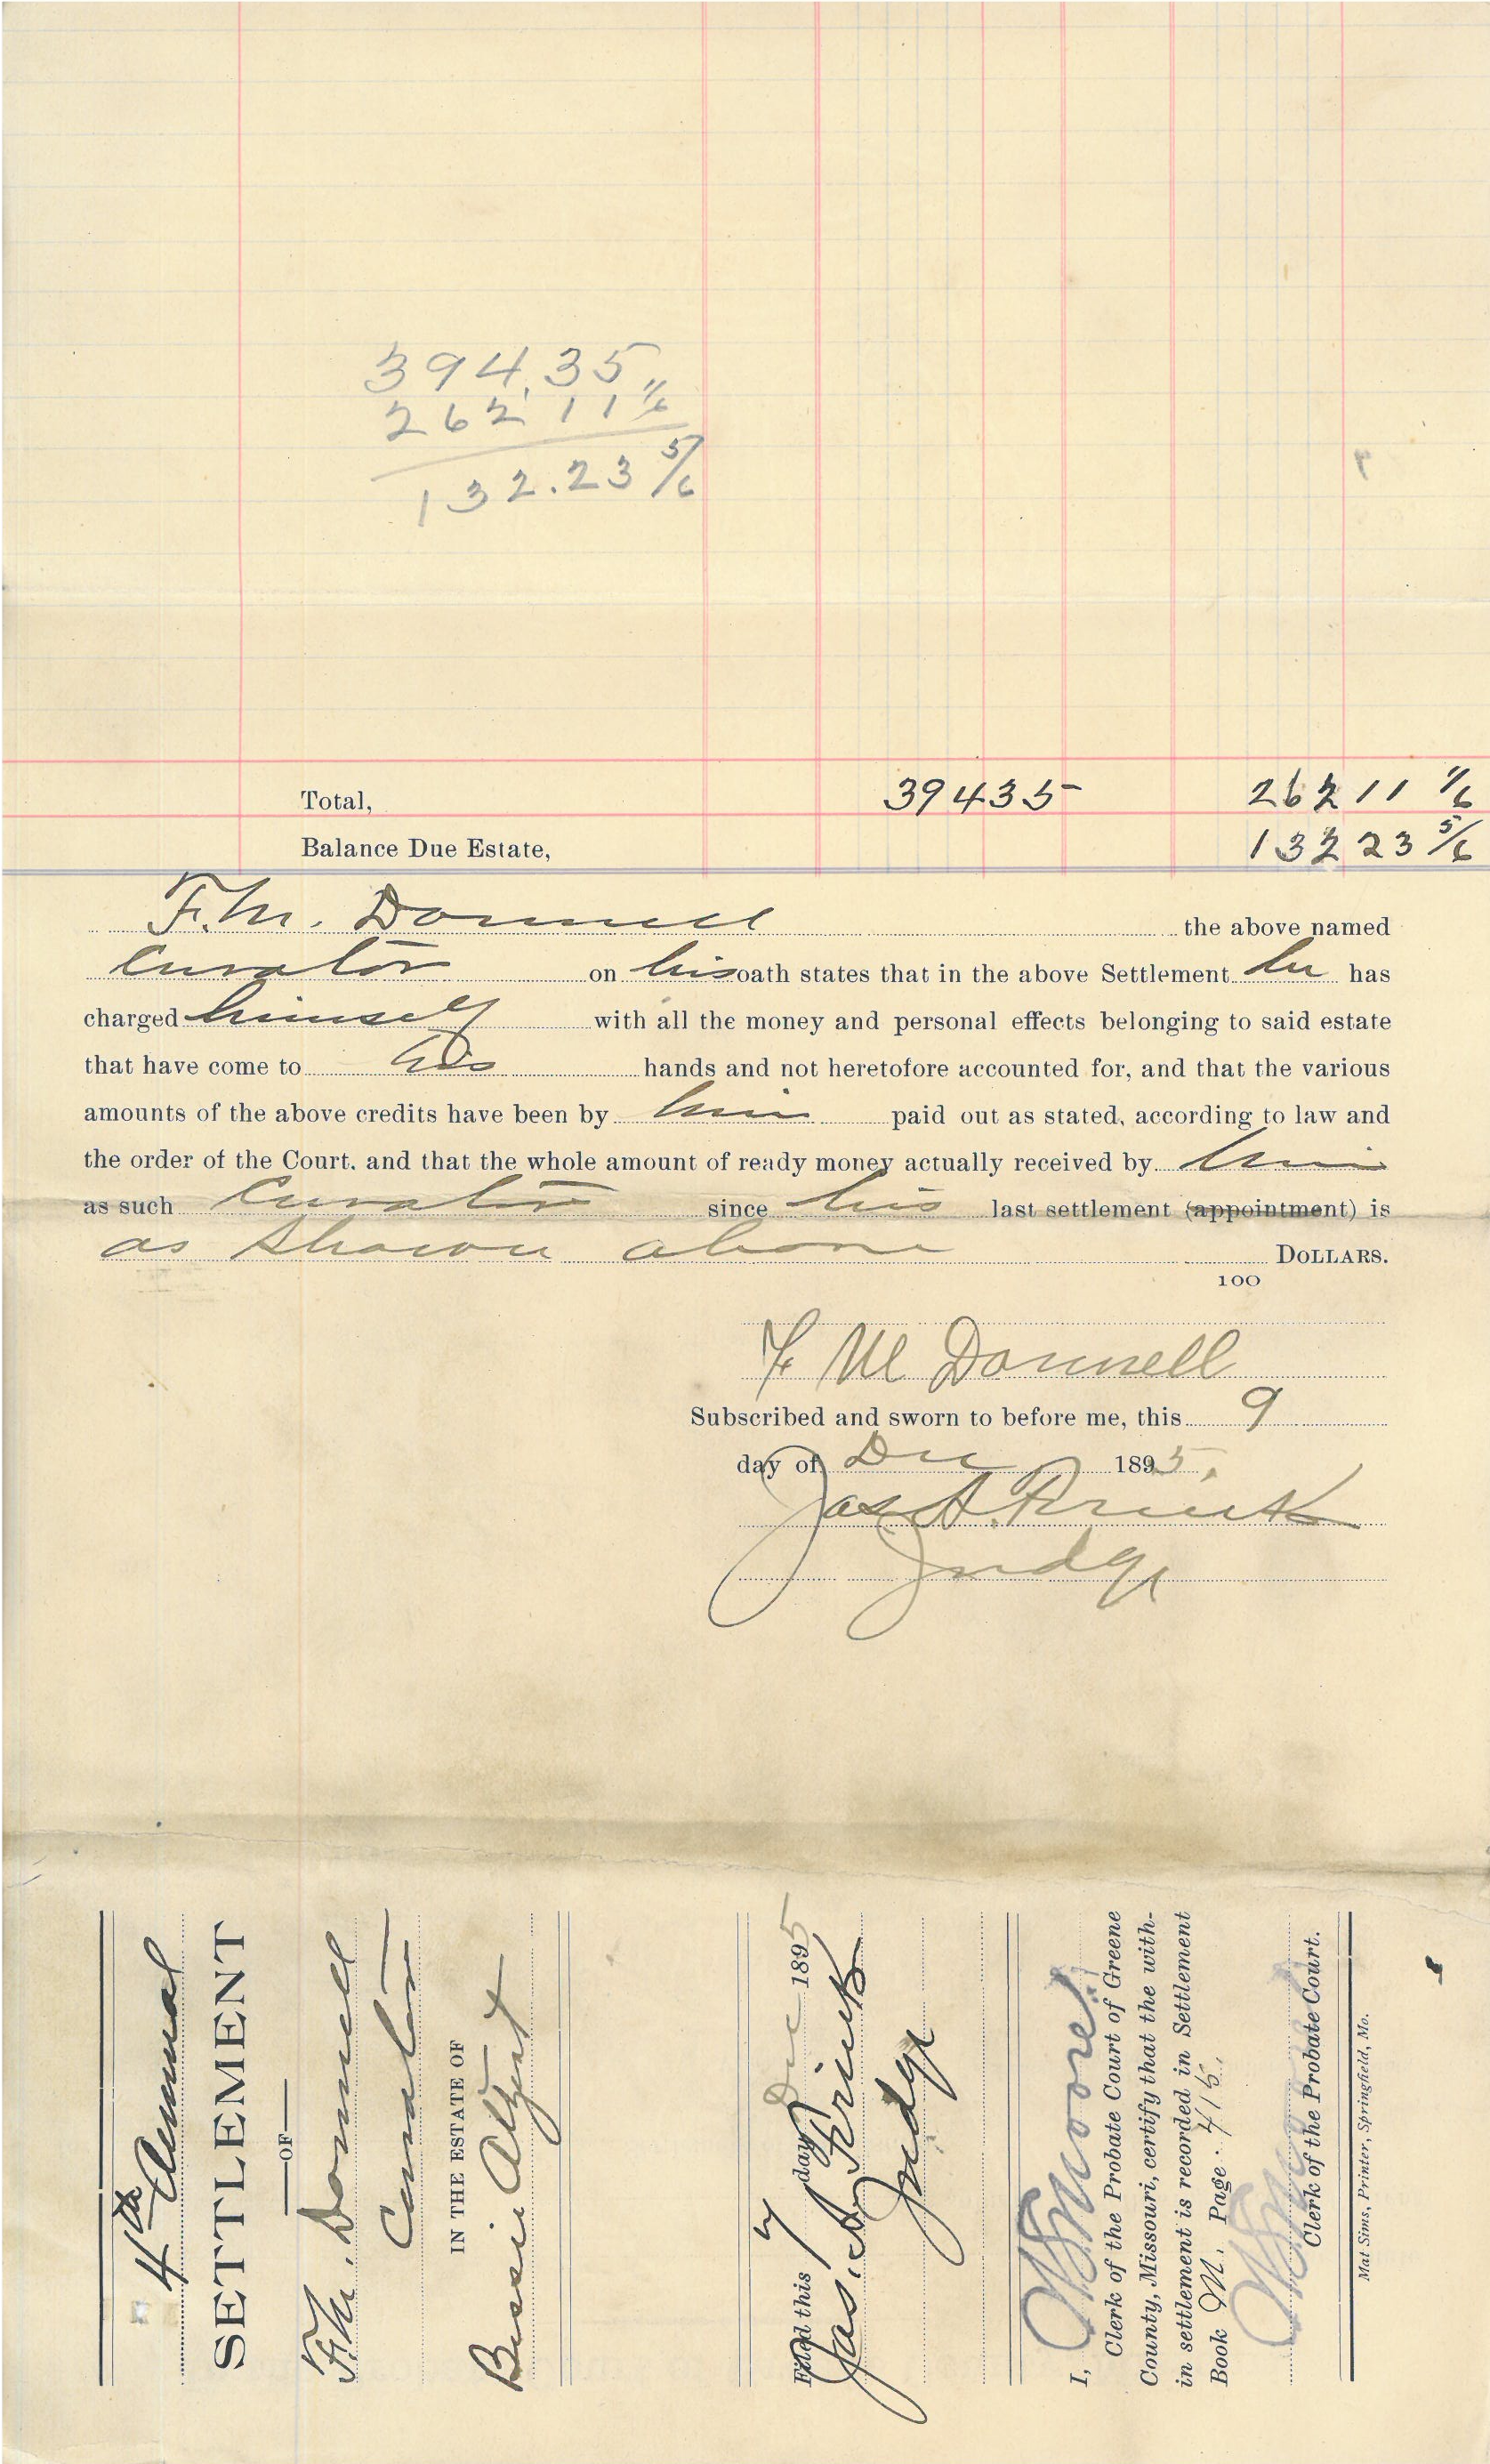 394.35
262 11 1/6
132.23 5/6
Total, 394 35 262 11 1/6
Balance Due Estate, 132 23 5/6
F. M. Donnell the above named
Curator on his oath states that in the above Settlement he has
charged himself with all the money and personal effects belonging to said estate
that have come to his hands and not heretofore accounted for, and that the various
amounts of the above credits have been by him paid out as stated, according to law and
the order of the Court, and that the whole amount of ready money actually received by him
as such Curator since his last settlement (appointment) is
as shown above DOLLARS.
100
F M Donnell
Subscribed and sworn to before me, this 9
day of Dec 1895.
Jas. A. Prink
Judge
4th Annual
SETTLEMENT
OF
F. M. Donnell
Curator
IN THE ESTATE OF
Bessie
Filed this day Dec 1895
Jas. A. Prink
Judge
I, Moore
Clerk of the Probate Court of Greene
County, Missouri, certify that the with-
in settlement is recorded in Settlement
Book M. Page 415.
Clerk of the Probate Court.
Mat Sims, Printer, Springfield, Mo.